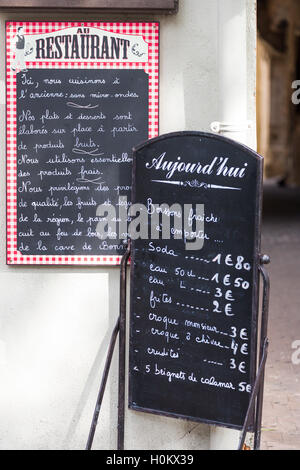 AU
RESTAURANT
Ici, nous cuisinons à
l'ancienne: sans micro-ondes.
Nos plats et desserts sont
élaborés sur place à partir
de produits bruts.
Nous utilisons essentiel
de produits frais.
Nous privilégions des produits
de qualité, les fruits et légu
de la région, le pain
cuit au feu de bois, des
de la cave de
Aujourd'hui
Boissons fraîche
à emporter...
Soda 1€80
eau 50 cl 1€50
eau 1L 2€
frites 2€
croque monsieur 3€
croque à chèvre 4€
crudités 3€
5 beignets de calamar 5€
alamy
Image ID: H0KX39
www.alamy.com